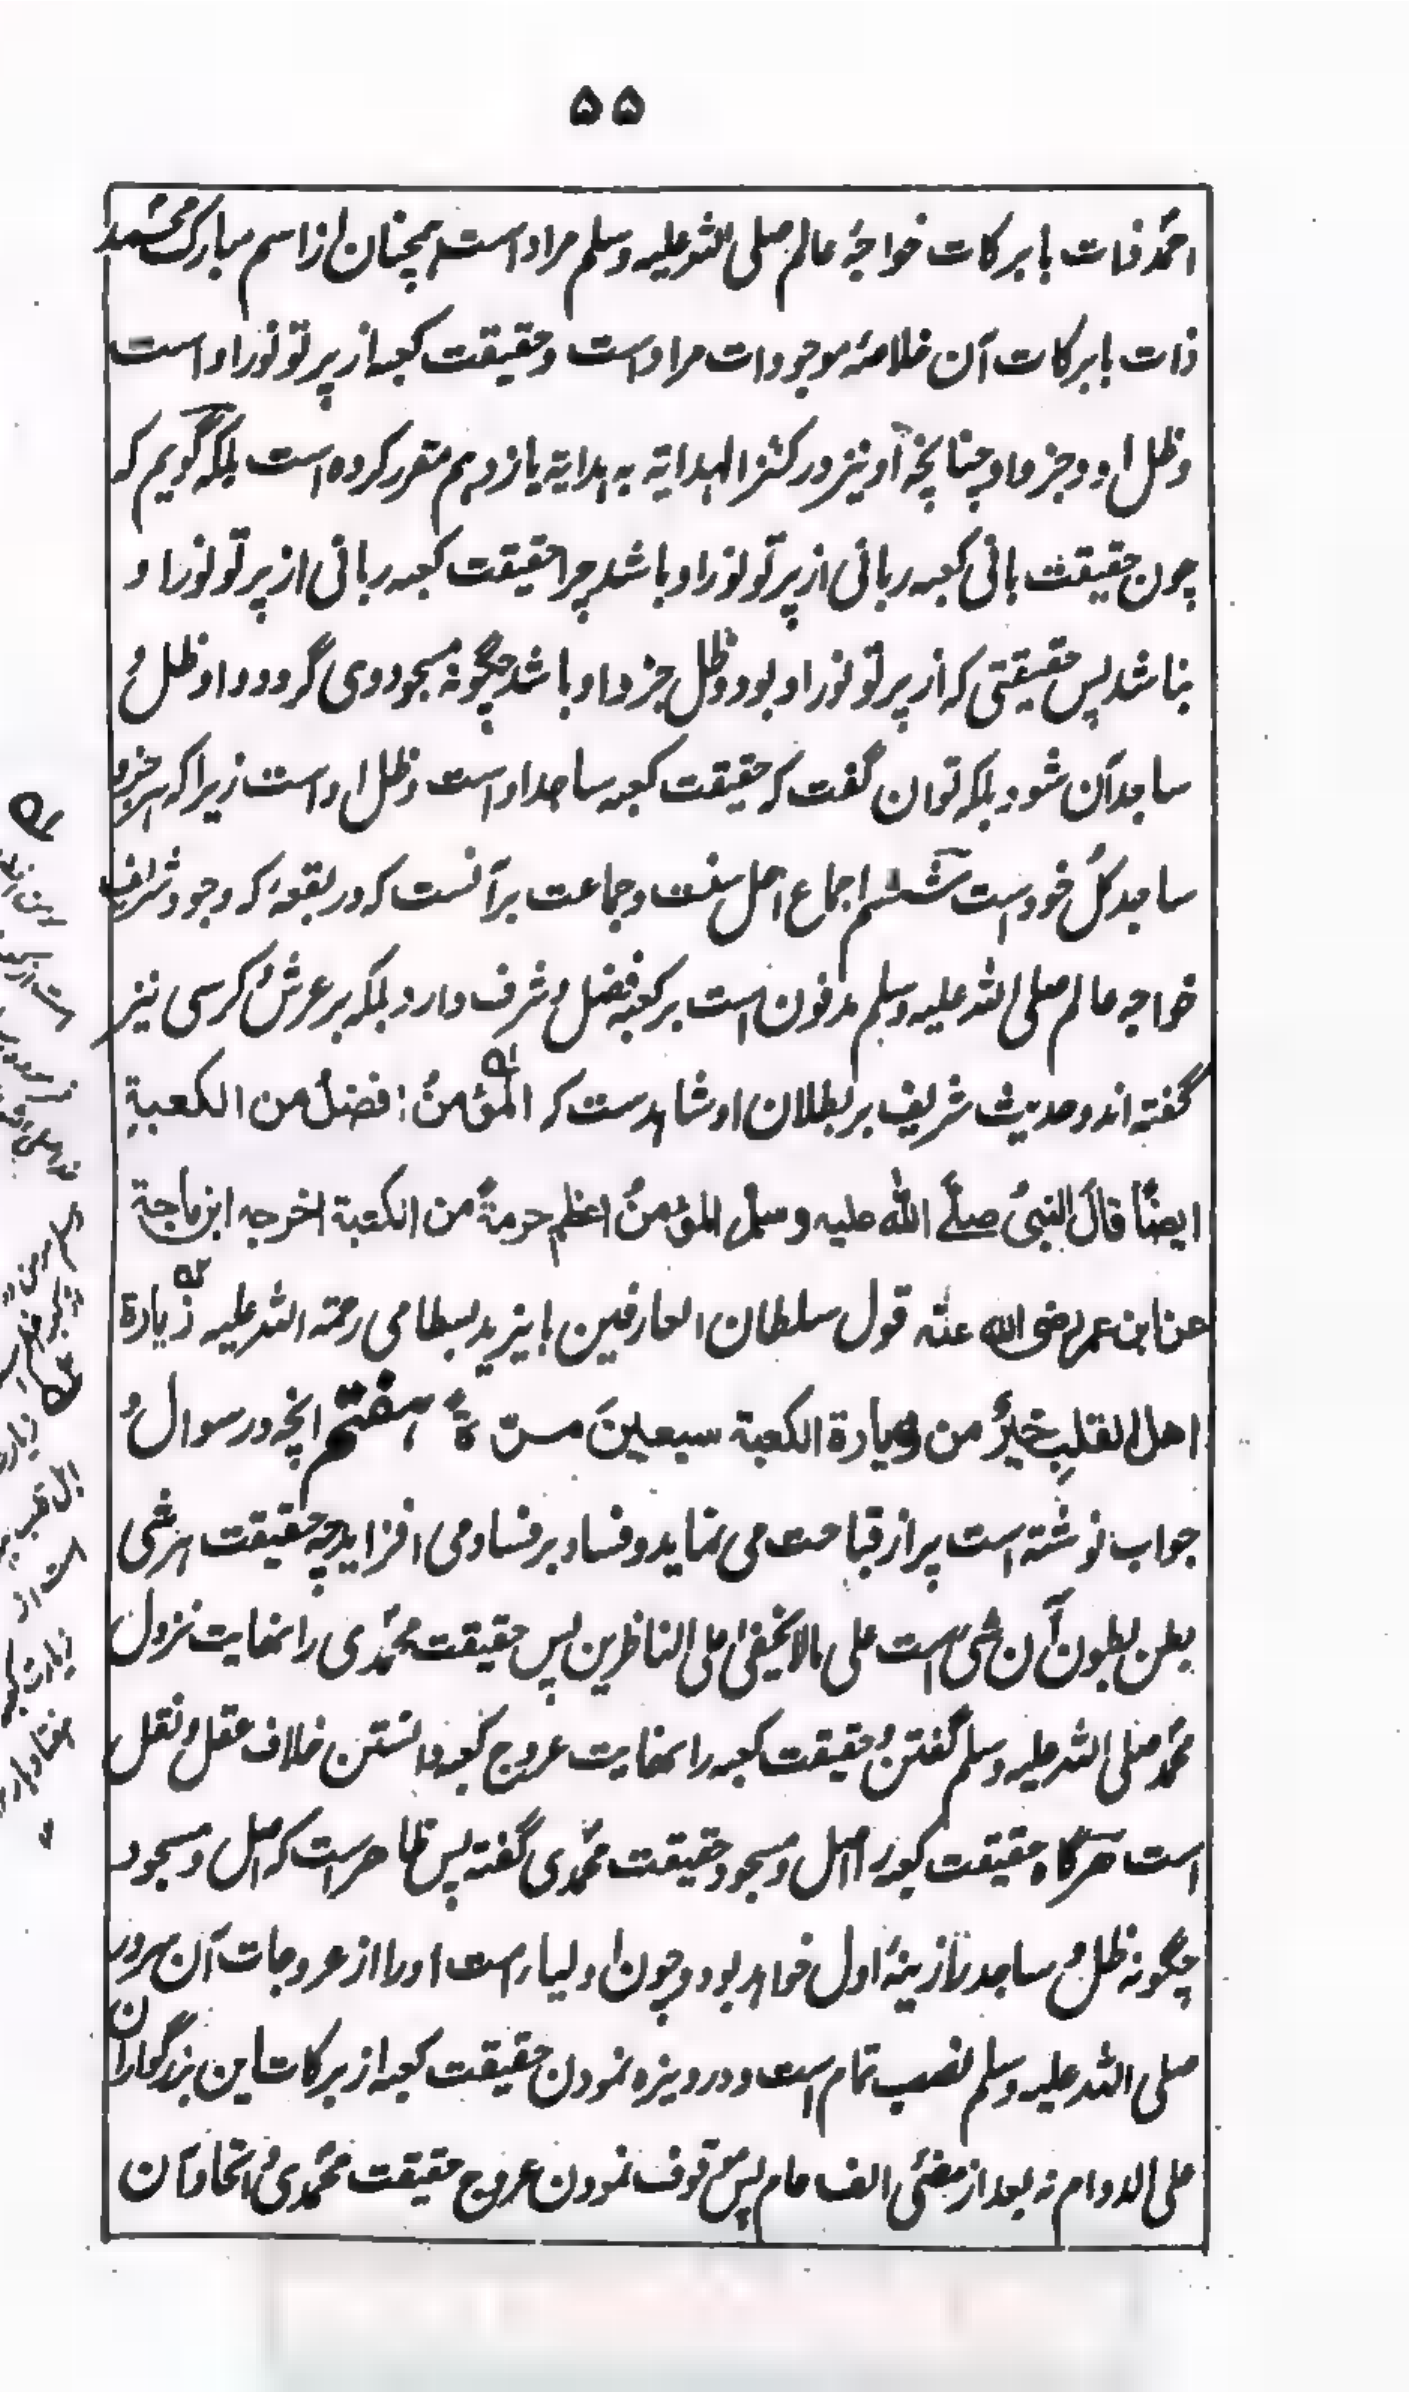 ۵۵
احمد ذات بابرکات خواجۂ عالم صلی الله علیه وسلم مراد است همچنان از اسم مبارک محمد
ذات بابرکات آن خلاصۂ موجودات مراد است وحقیقت کعبه از پرتو نور او است
وظل او وجزء او چنانچه او نیز در کنز الهدایة به هدایة یازدهم مقرر کرده است بلکه گویم که
چون حقیقت بانی کعبه ربانی از پرتو نور او باشد چرا حقیقت کعبه ربانی از پرتو نور او
نباشد پس حقیقتی که از پرتو نور او بود وظل جزء او باشد چگونه مسجود وی گردد و او ظل و
ساجد آن شود بلکه توان گفت که حقیقت کعبه ساجد او است وظل او است زیرا که هر جزو
ساجد کل خود است ششم اجماع اهل سنت وجماعت بر آنست که در بقعه که وجود شریف
خواجه عالم صلی الله علیه وسلم مدفون است بر کعبه فضل و شرف دارد بلکه بر عرش و کرسی نیز
گفته اند وحدیث شریف بر بطلان او شاهدست که المؤمنُ افضلُ من الکعبةِ
ایضًا قالَ النبیُ صلّے الله علیه وسلم المؤمنُ اعظم حرمةً من الکعبة اخرجه ابن ماجة
عن ابن عمر رضی الله عنه قول سلطان العارفین بایزید بسطامی رحمة الله علیه زیارة
اهل القلبِ خیرٌ من زیارة الکعبة سبعینَ مرّةً هفتم انچه در سوال و
جواب نوشته است پر از قباحت می نماید وفساد بر فساد می افزاید چه حقیقت هر شی
بطن بطون آن شی است علی مالا یخفی علی الناظرین پس حقیقت محمدی را نهایت نزول
محمد صلی الله علیه وسلم گفتن و حقیقت کعبه را نهایت عروج کعبه دانستن خلاف عقل و نقل
است هرگاه حقیقت کعبه را اصل ومسجود حقیقت محمدی گفته پس ظاهرست که اصل ومسجود
چگونه ظل و ساجد زینۂ اول خواهد بود وچون اولیاء است او را از عروجات آن سرور
صلی الله علیه وسلم نصیب تمام است ودریوزه نمودن حقیقت کعبه از برکات این بزرگواران
علی الدوام نه بعد از مضئی الف عام پس موقوف نمودن عروج حقیقت محمدی و اتحاد آن